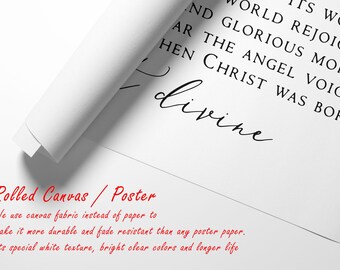 ITS WO
WORLD REJOIC
AND GLORIOUS MO
AR THE ANGEL VOIC
HEN CHRIST WAS BO
divine
Rolled Canvas / Poster
We use canvas fabric instead of paper to
ake it more durable and fade resistant than any poster paper.
ts special white texture, bright clear colors and longer life